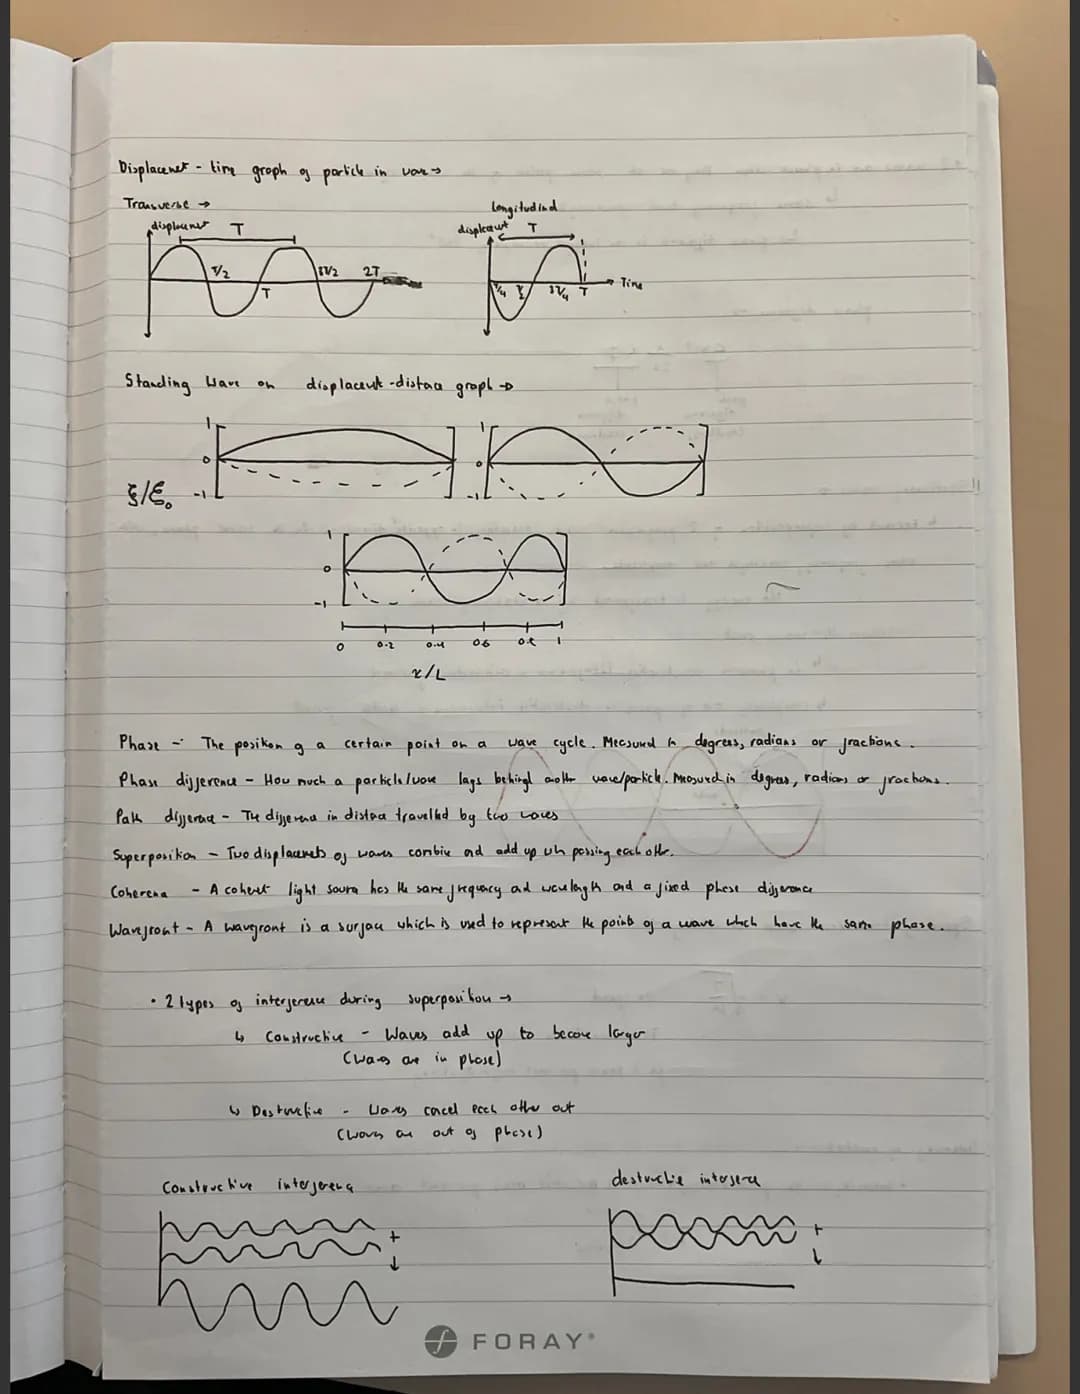 Displacemet - time graph of particle in wave →
Transverse →
Longitudinal
displacement
T
displacemt
T
T/2
3T/2
2T
T
T/4
T/2
3T/4
T
Time
Standing Wave on displacemet - distace graph →
1
0
-1
1
0
-1
ξ/ξ₀
1
0
-1
0 0.2 0.4 0.6 0.8 1
x/L
Phase - The position of a certain point on a wave cycle. Measured in degrees, radians or fractions.
Phase difference - How much a particle/wave lags behind another wave/particle. Measured in degrees, radians or fractions.
Path difference - The difference in distace travelled by two waves
Superposition - Two displacemets of waves combine and add up wh passing each other.
Coherence - A coheret light source has the same frequency and wavelength and a fixed phase difference
Wavefront - A wavefront is a surface which is used to represent the points of a wave which have the same phase.
• 2 types of interference during superposition →
↳ Constructive - Waves add up to become larger
(Waves are in phase)
↳ Destructive - Waves cancel each other out
(Waves are out of phase)
Constructive interference
destructive interference
+
↓
+
↓
FORAY®